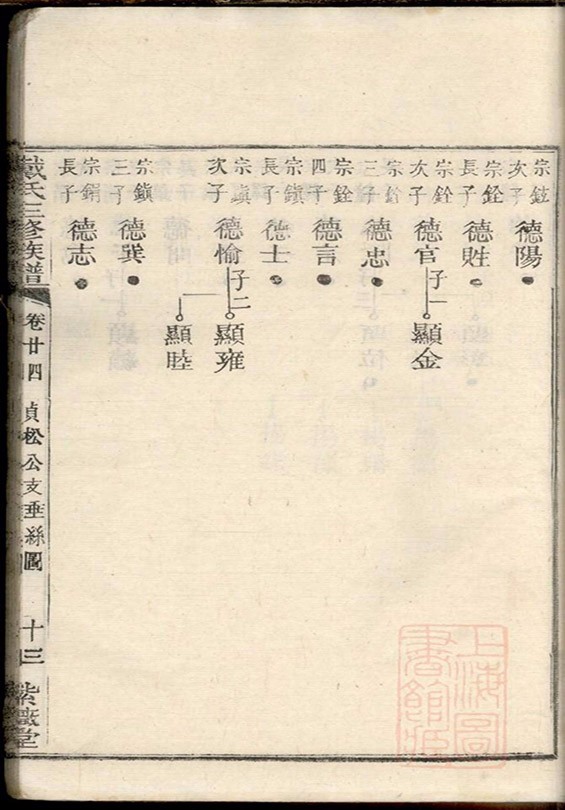 宗鉉次子 德陽
宗銓長子 德甡
宗銓次子 德官 子一 顯金
宗銓三子 德忠
宗銓四子 德言
宗鎮長子 德士
宗鎮次子 德愉 子二 顯雍
顯睦
宗鎮三子 德巽
宗鎙長子 德志
戴氏三修族譜 卷廿四 貞松公支垂絲圖 十三 紫薇堂
上海圖書館藏